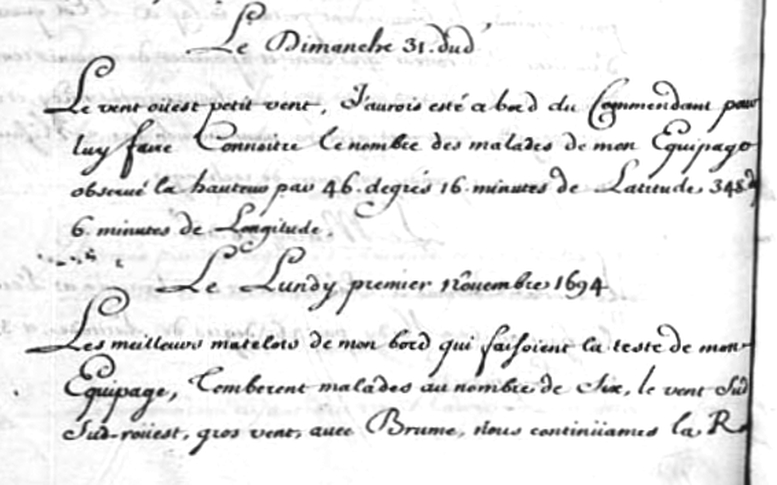 Le Dimanche 31. dud'
Le vent oüest petit vent, J'aurois esté a bord du Commendant pour
luy faire Connoitre le nombre des malades de mon Equipage
obserué la hauteur par 46. degrés 16. minutes de Latitude, 348. d
6. minutes de Longitude.
Le Lundy premier nouembre 1694
Les meilleurs matelots de mon bord qui faisoient la teste de mon
Equipage, tomberent malades au nombre de Six, le vent Sud
Sud-roüest, gros vent, auec Brume, nous continüames la R